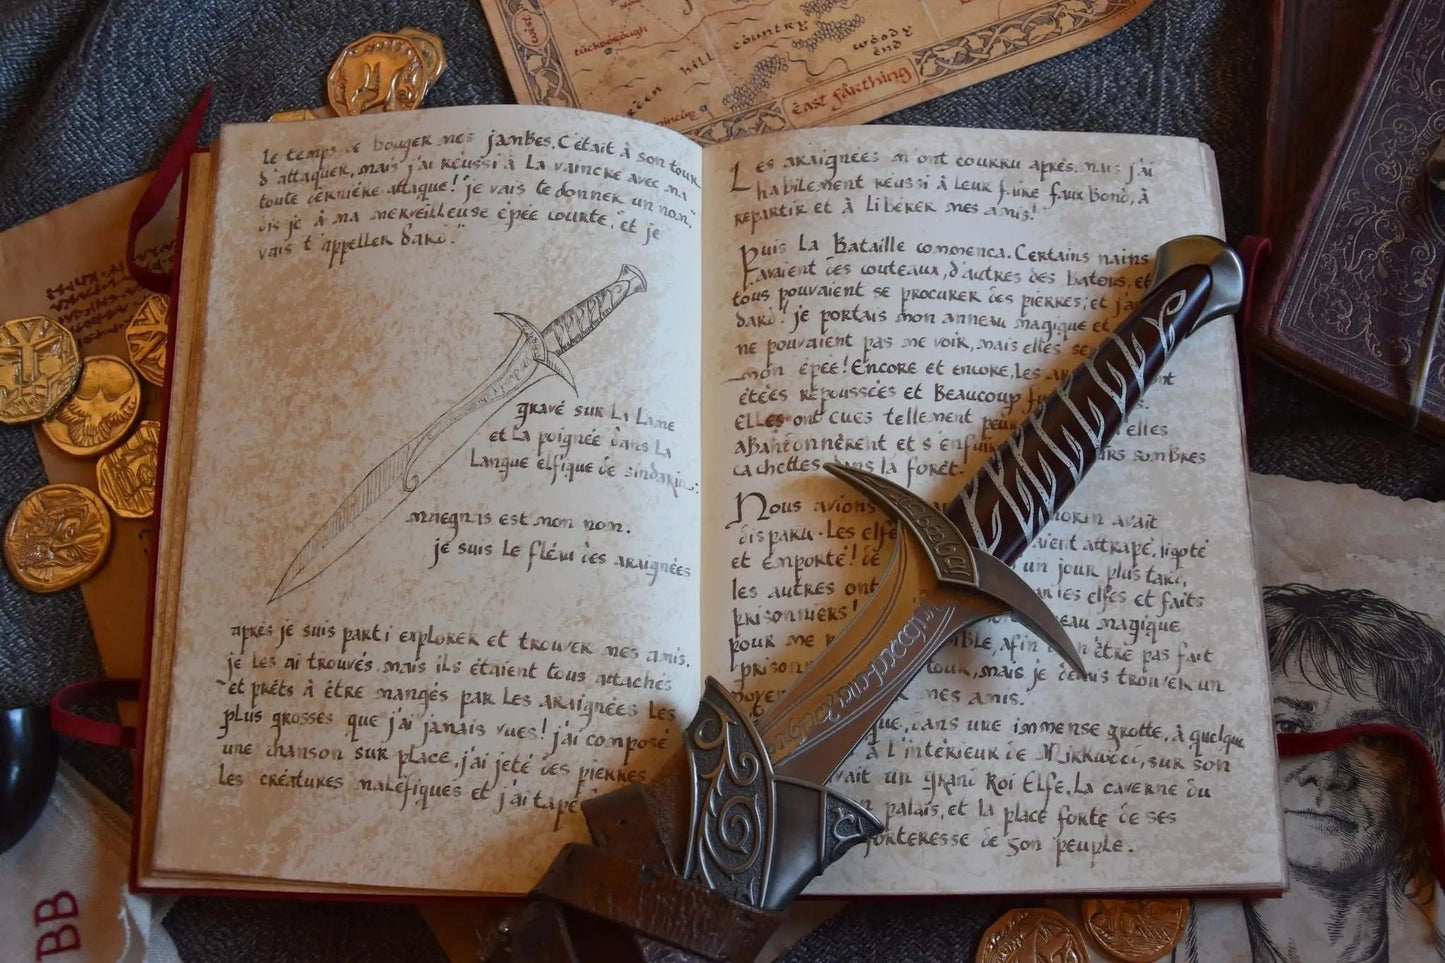 Tuckborough
hill
country
woody
end
East farthing
le temps de bouger mes jambes. C'était à son tour
d'attaquer, mais j'ai réussi à la vaincre avec ma
toute dernière attaque! "je vais te donner un nom,"
dis je à ma merveilleuse épée courte, "et je
vais t'appeller Dard."
gravé sur la lame
et la poignée dans la
langue elfique de sindarin:
maegnas est mon nom.
je suis le fléau des araignées
après je suis parti explorer et trouver mes amis.
je les ai trouvés, mais ils étaient tous attachés
et prêts à être mangés par les araignées les
plus grosses que j'ai jamais vues! j'ai composé
une chanson sur place, j'ai jeté des pierres
les créatures maléfiques et j'ai tapé
Les araignées m'ont courru après, mais j'ai
habilement réussi à leur faire faux bond, à
repartir et à libérer mes amis!
Puis la Bataille commença. Certains nains
avaient des couteaux, d'autres des batons, et
tous pouvaient se procurer des pierres; et j'a
dard! je portais mon anneau magique et
ne pouvaient pas me voir, mais elles se
mon épée! Encore et encore, les ar
étées repoussées et Beaucoup fu
elles ont eues tellement peur elles
abandonnèrent et s'enfui rs sombres
cachettes dans la forêt.
Nous avions horin avait
disparu. Les elfe aient attrapé, ligoté
et emporté! de un jour plus tard,
les autres ont les elfes et faits
prisonniers! eau magique
pour me être pas fait
prison mais je devais trouver un
moyen mes amis.
que, dans une immense grotte, à quelque
à l'intérieur de Mirkwood, sur son
vait un grand Roi Elfe. La caverne du
palais, et la place forte de ses
forteresse de son peuple.
BB